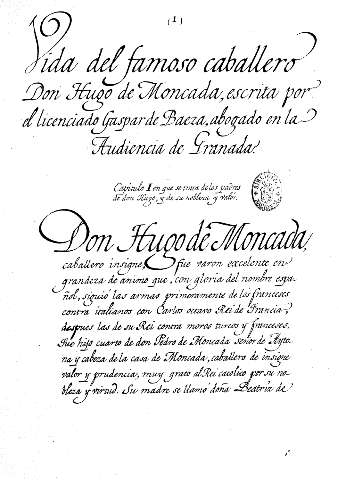 (1)
Vida del famoso caballero
Don Hugo de Moncada, escrita por
el licenciado Gaspar de Baeza, abogado en la
Audiencia de Granada.
Capitulo I en que se trata de los padres
de don Hugo, y de su nobleza y valor.
Don Hugo de Moncada,
caballero insigne, fue varon excelente en
grandeza de animo que, con gloria del nombre espa-
ñol, siguió las armas primeramente de los franceses
contra italianos con Carlos octavo Rei de Francia y
despues las de su Rei contra moros turcos y franceses.
Fue hijo cuarto de don Pedro de Moncada señor de Ayto-
na y cabeza de la casa de Moncada, caballero de insigne
valor y prudencia, muy grato al Rei catolico por su no-
bleza y virtud. Su madre se llamó doña Beatriz de